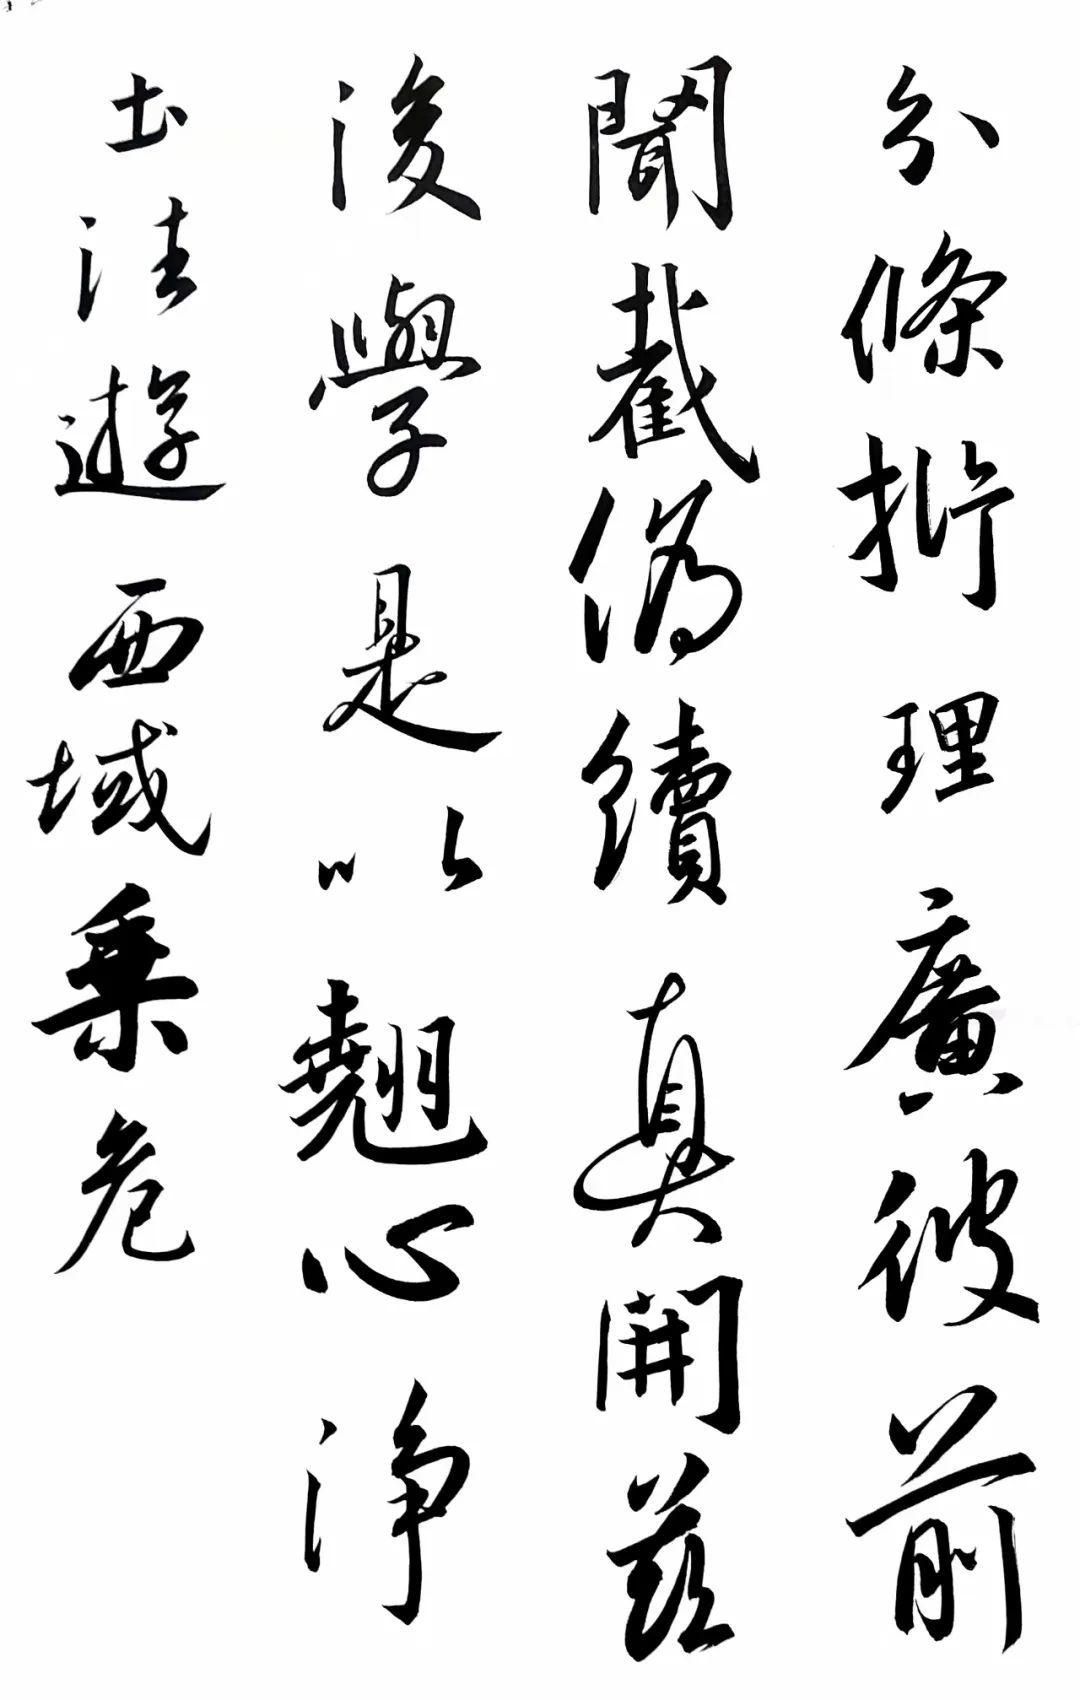 分條析理廣彼前
聞截偽續真開茲
後學是以翹心淨
土往遊西域乗危